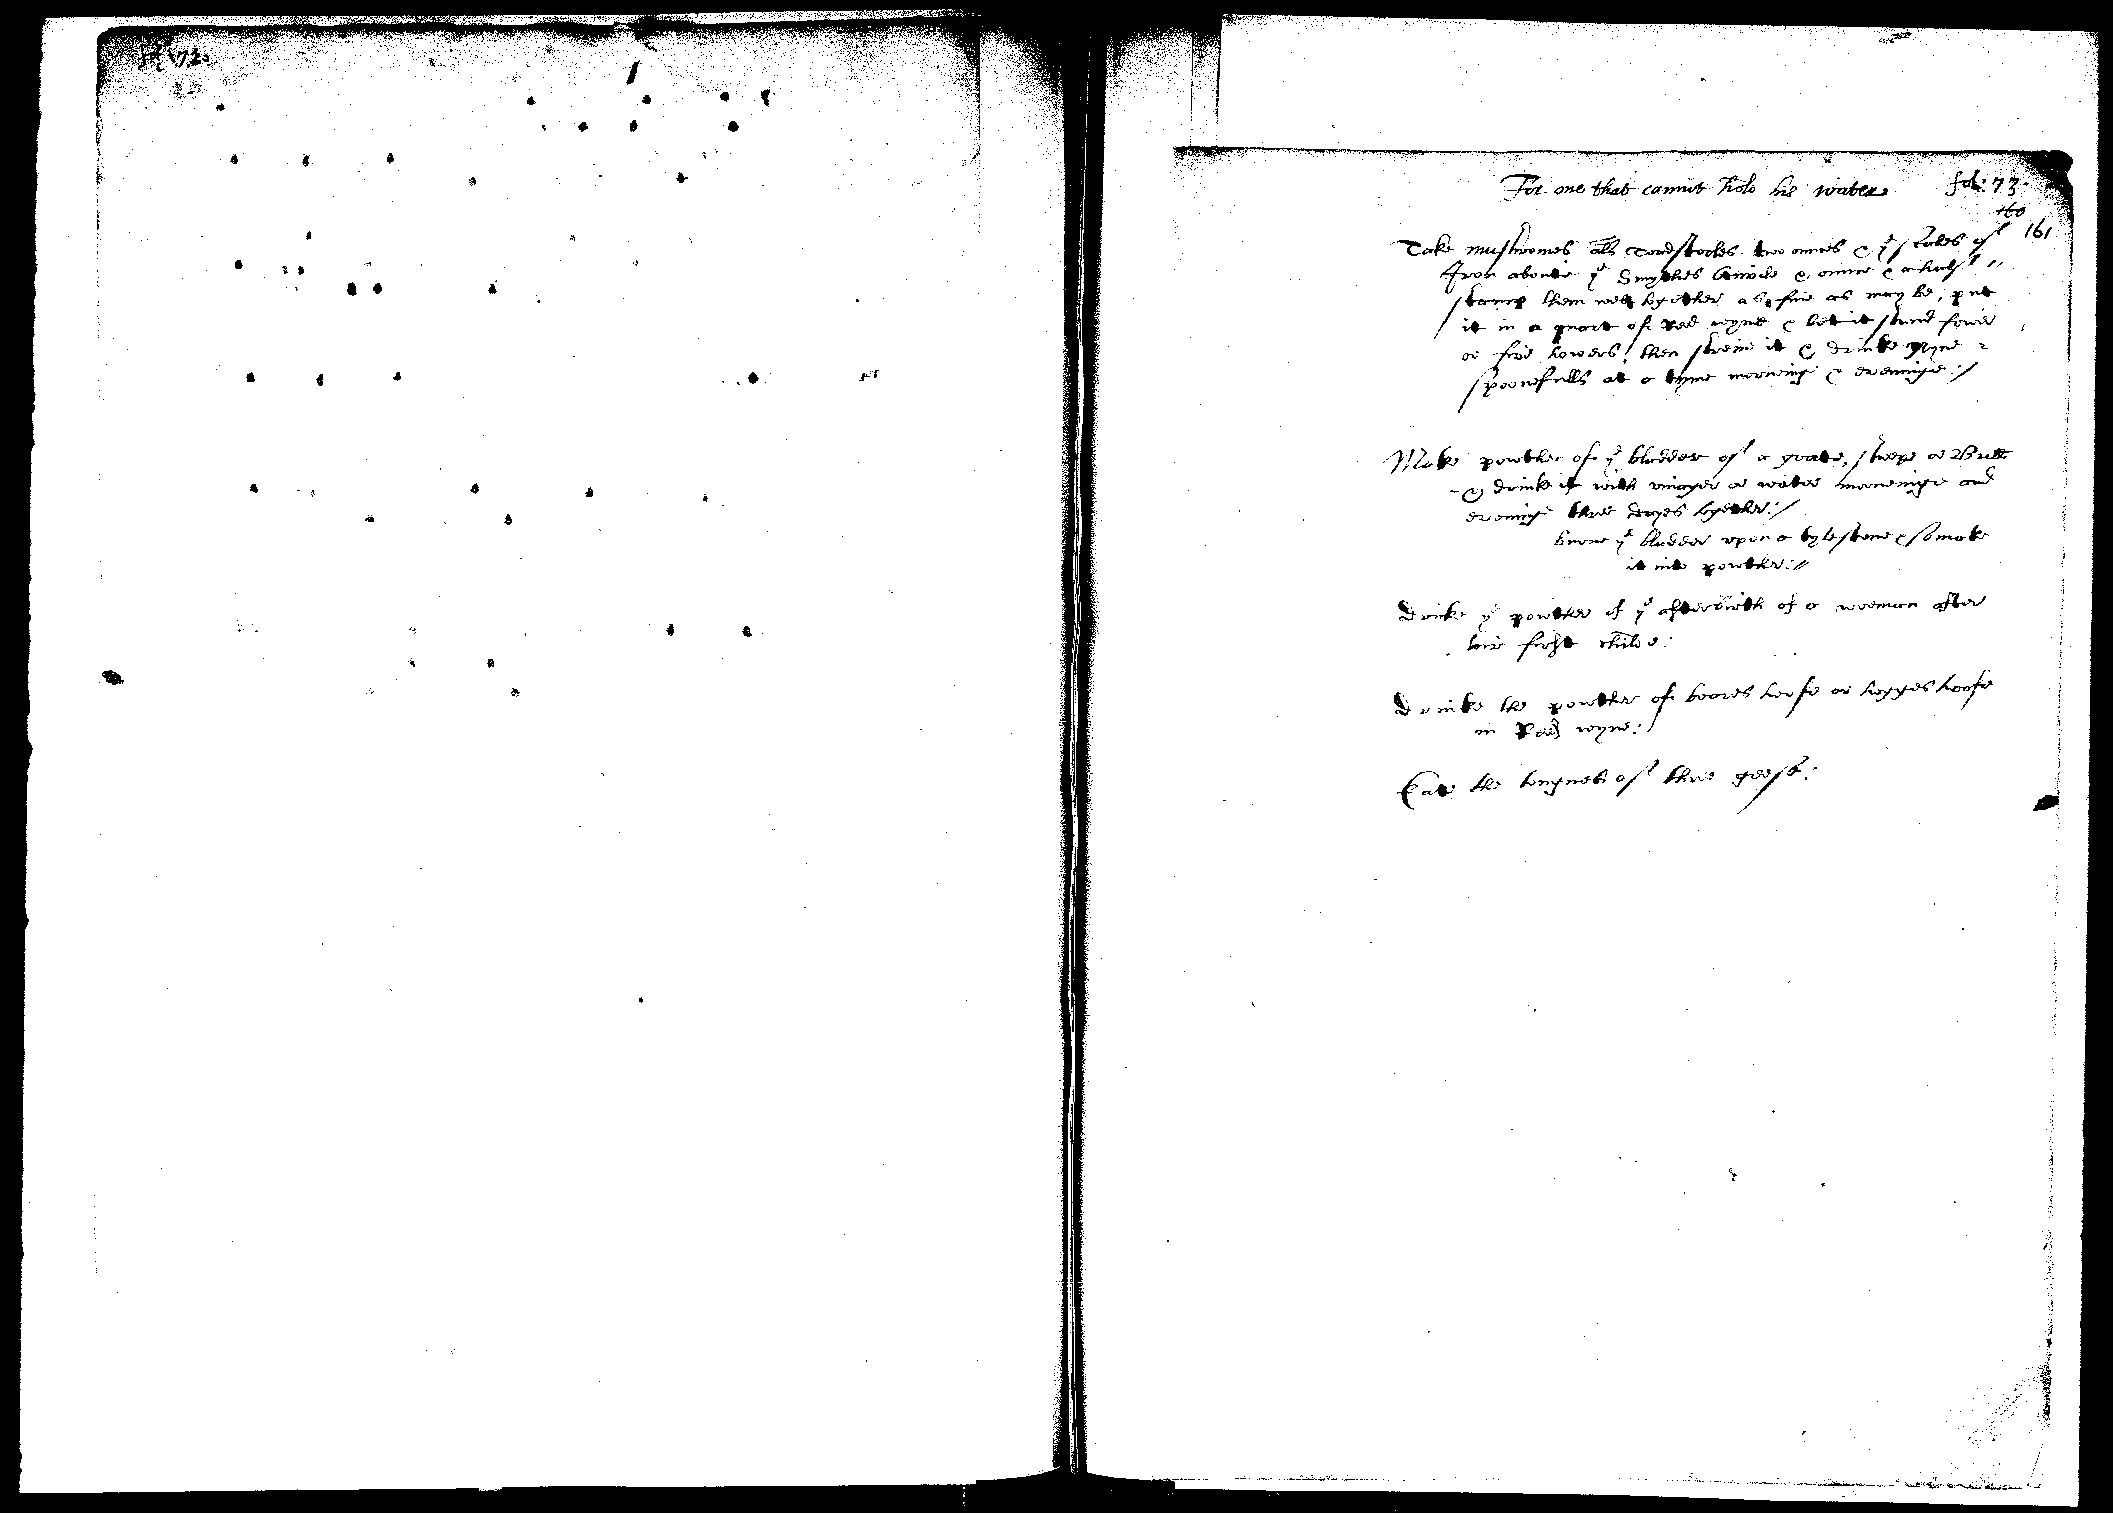 72.
For one that cannot hold his water fol: 73.
160
161
Take mushromes als Toadstooles two ounces & yͤ scales of
Iron aboute yͤ Smythes & ounce & a half
stampe them well together as fine as may be, put
it in a quart of Red wyne & let it stand fower
or five howers, then streine it & drinke nyne
spoonefulls at a tyme morning & evening:/
Make powther of yͤ bladder of a goate, shepe or Bull
& drinke it with vinager or water morninge and
evening three dayes together:/
burne yͤ bladder upon a tylestone & so make
it into powther://
Drinke yͤ powther of yͤ afterbirth of a woeman after
her first childe:
Drinke the powther of boares hoofe or hogges hoofe
in Red wyne:
Eate the tongues of three geese: